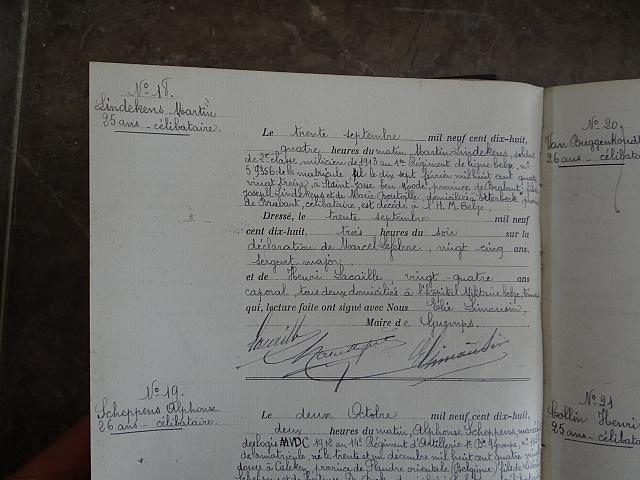 No 18.
Lindekens Martin
25 ans - célibataire.
Le trente septembre mil neuf cent dix-huit,
quatre heures du matin, Martin Lindekens, soldat
de 2e classe, milicien de 1913 au 1er Régiment de ligne belge, no
59356 de la matricule, né le dix sept février mil huit cent quatre
vingt treize, à Saint Josse ten Noode, province de Brabant, fils
Joseph Lindekens et de Marie, domiciliés à Etterbeek, prov
de Brabant, célibataire, est décédé à l'H. M. Belge,
Dressé, le trente septembre mil neuf
cent dix-huit, trois heures du soir sur la
déclaration de Marcel Lefebvre, vingt-cinq ans,
sergent major,
et de Henri Lacaille, vingt-quatre ans
caporal, tous deux domiciliés à l'hôpital Militaire belge, témoins
qui, lecture faite ont signé avec Nous Elie Limousin,
Maire de Guemps.
No 19.
Scheppens Alphonse
26 ans - célibataire.
Le deux Octobre mil neuf cent dix-huit,
deux heures du matin, Alphonse Scheppens, maréc
des logis MVDC 1912 au 14e Régiment d'Artillerie
de la matricule, né le trente et un décembre mil huit cent quatre vingt
douze à Calcken, province de Flandre orientale (Belgique) fils de
No 20.
Van Buggenhoudt
26 ans - céliba
No 21
Collin Henri
25 ans - céliba